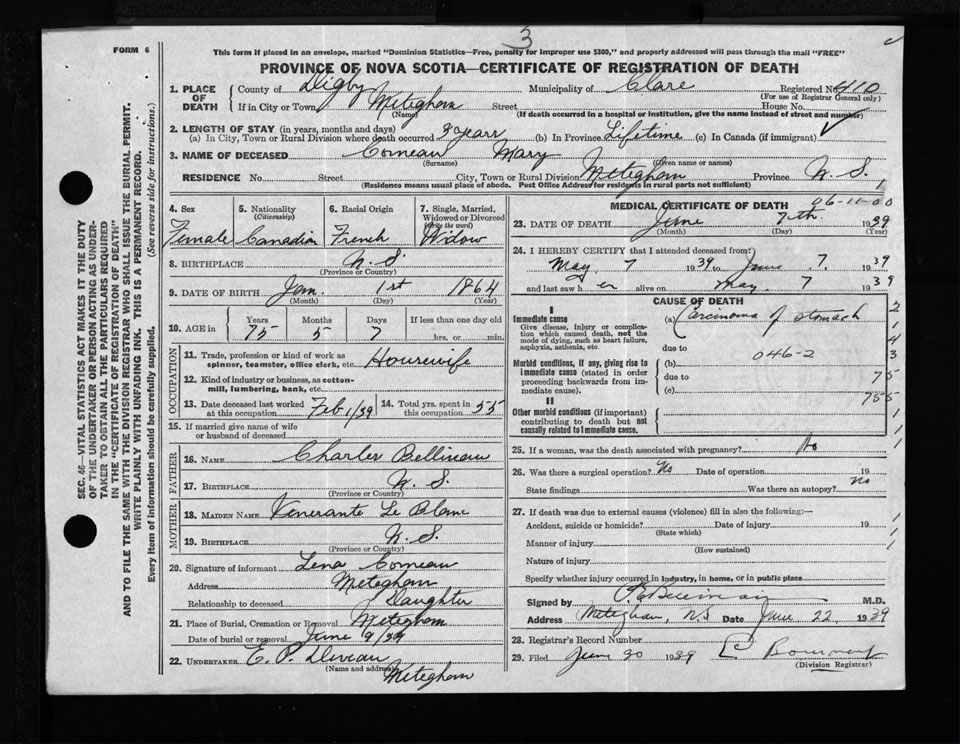 3
FORM 6
This form if placed in an envelope, marked "Dominion Statistics—Free, penalty for improper use $300," and properly addressed will pass through the mail "FREE"
PROVINCE OF NOVA SCOTIA—CERTIFICATE OF REGISTRATION OF DEATH
SEC. 46—VITAL STATISTICS ACT MAKES IT THE DUTY
OF THE UNDERTAKER OR PERSON ACTING AS UNDER-
TAKER TO OBTAIN ALL THE PARTICULARS REQUIRED
IN THE "CERTIFICATE OF REGISTRATION OF DEATH"
AND TO FILE THE SAME WITH THE DIVISION REGISTRAR WHO SHALL ISSUE THE BURIAL PERMIT.
WRITE PLAINLY WITH UNFADING INK. THIS IS A PERMANENT RECORD.
Every item of information should be carefully supplied. (See reverse side for instructions.)
1. PLACE OF DEATH
County of Digby Municipality of Clare Registered No. 410
(For use of Registrar General only)
If in City or Town Meteghan Street House No.
(Name) (If death occurred in a hospital or institution, give the name instead of street and number)
2. LENGTH OF STAY (in years, months and days)
(a) In City, Town or Rural Division where death occurred 9 years (b) In Province Lifetime (c) In Canada (if immigrant)
3. NAME OF DECEASED Comeau Mary
(Surname) (Given name or names)
RESIDENCE No. Street City, Town or Rural Division Meteghan Province N. S.
(Residence means usual place of abode. Post Office Address for residents in rural parts not sufficient)
4. Sex
Female
5. Nationality
(Citizenship)
Canadian
6. Racial Origin
French
7. Single, Married,
Widowed or Divorced
(Write the word)
Widow
8. BIRTHPLACE N. S.
(Province or Country)
9. DATE OF BIRTH Jan. 1st 1864
(Month) (Day) (Year)
10. AGE in
Years Months Days If less than one day old
75 5 7 hrs. or min.
OCCUPATION
11. Trade, profession or kind of work as
spinner, teamster, office clerk, etc. Housewife
12. Kind of industry or business, as cotton-
mill, lumbering, bank, etc.
13. Date deceased last worked
at this occupation Feb 1/39
14. Total yrs. spent in
this occupation 55
15. If married give name of wife
or husband of deceased
FATHER
16. NAME Charles Belliveau
17. BIRTHPLACE N. S.
(Province or Country)
MOTHER
18. MAIDEN NAME Venerante Le Blanc
19. BIRTHPLACE N. S.
(Province or Country)
20. Signature of informant Lena Comeau
Address Meteghan
Relationship to deceased Daughter
21. Place of Burial, Cremation or Removal Meteghan
Date of burial or removal June 9/39
22. UNDERTAKER E. P. Deveau
(Name and address)
Meteghan
MEDICAL CERTIFICATE OF DEATH
06-11-00
1
23. DATE OF DEATH June 7th 1939
(Month) (Day) (Year)
24. I HEREBY CERTIFY that I attended deceased from
May 7 1939 to June 7 1939
and last saw her alive on May 7 1939
CAUSE OF DEATH
I
Immediate cause
Give disease, injury or complica-
tion which caused death, not the
mode of dying, such as heart failure,
asphyxia, asthenia, etc.
(a) Carcinoma of stomach
due to
Morbid conditions, if any, giving rise to
immediate cause (stated in order
proceeding backwards from im-
mediate cause).
(b) 046-2
due to
(c)
II
Other morbid conditions (if important)
contributing to death but not
causally related to immediate cause.
25. If a woman, was the death associated with pregnancy? No
26. Was there a surgical operation? No Date of operation 19
State findings Was there an autopsy? No
27. If death was due to external causes (violence) fill in also the following:—
Accident, suicide or homicide? Date of injury 19
(State which)
Manner of injury
(How sustained)
Nature of injury
Specify whether injury occurred in industry, in home, or in public place
Signed by M.D.
Address Meteghan, N.S. Date June 22 1939
28. Registrar's Record Number
29. Filed June 30 1939
(Division Registrar)